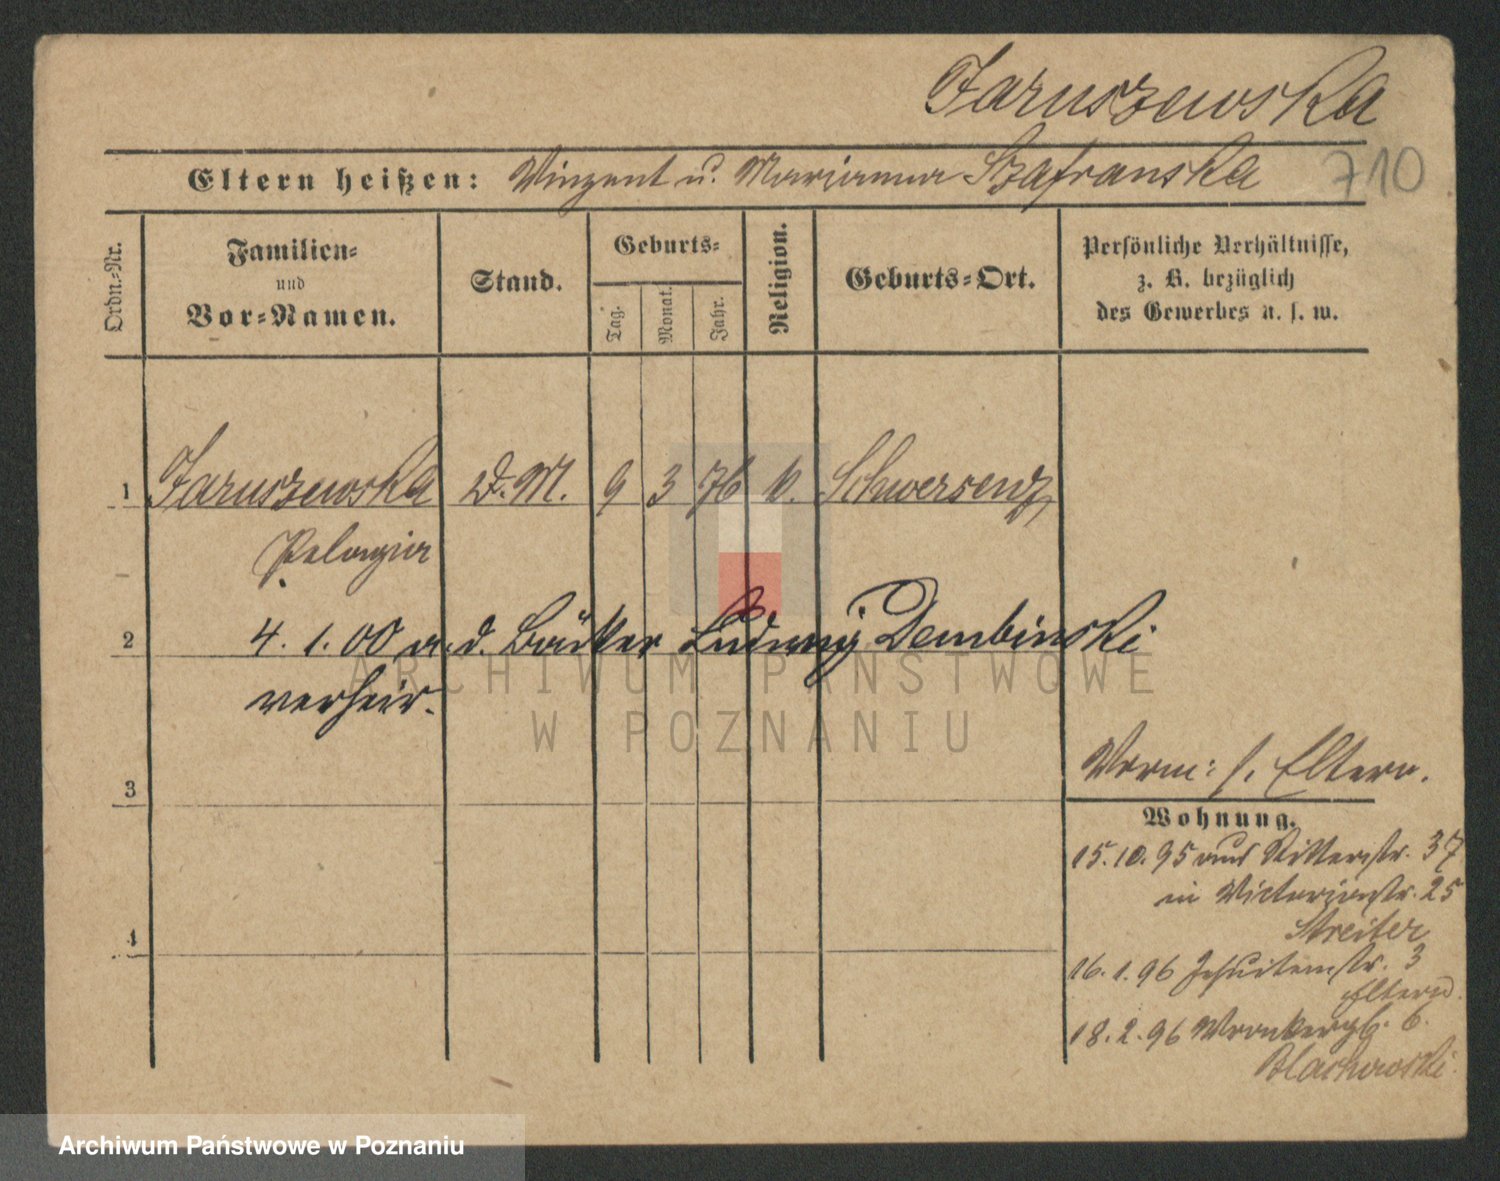 Jaruszewska
Eltern heißen: Vinzent u. Marianna Szafranska 710
Ordn.-Nr.
Familien-
und
Vor-Namen.
Stand.
Geburts-
Tag.
Monat.
Jahr.
Religion.
Geburts-Ort.
Persönliche Verhältnisse,
z. B. bezüglich
des Gewerbes u. s. w.
1 Jaruszewska D.M. 9 3 76 k. Schwersenz
Pelagia
2 4. 1. 00 a. d. Bäcker Ludwig Dembinski
verheir.
3
4
Vorm: s. Eltern.
Wohnung.
15.10.95 aus Ritterstr. 37
in Victoriastr. 25
Streiter
16.1.96 Jesuitenstr. 3
Eltern
18.2.96 Wronkerpl. 6.
Blachowski
ARCHIWUM PAŃSTWOWE
W POZNANIU
Archiwum Państwowe w Poznaniu